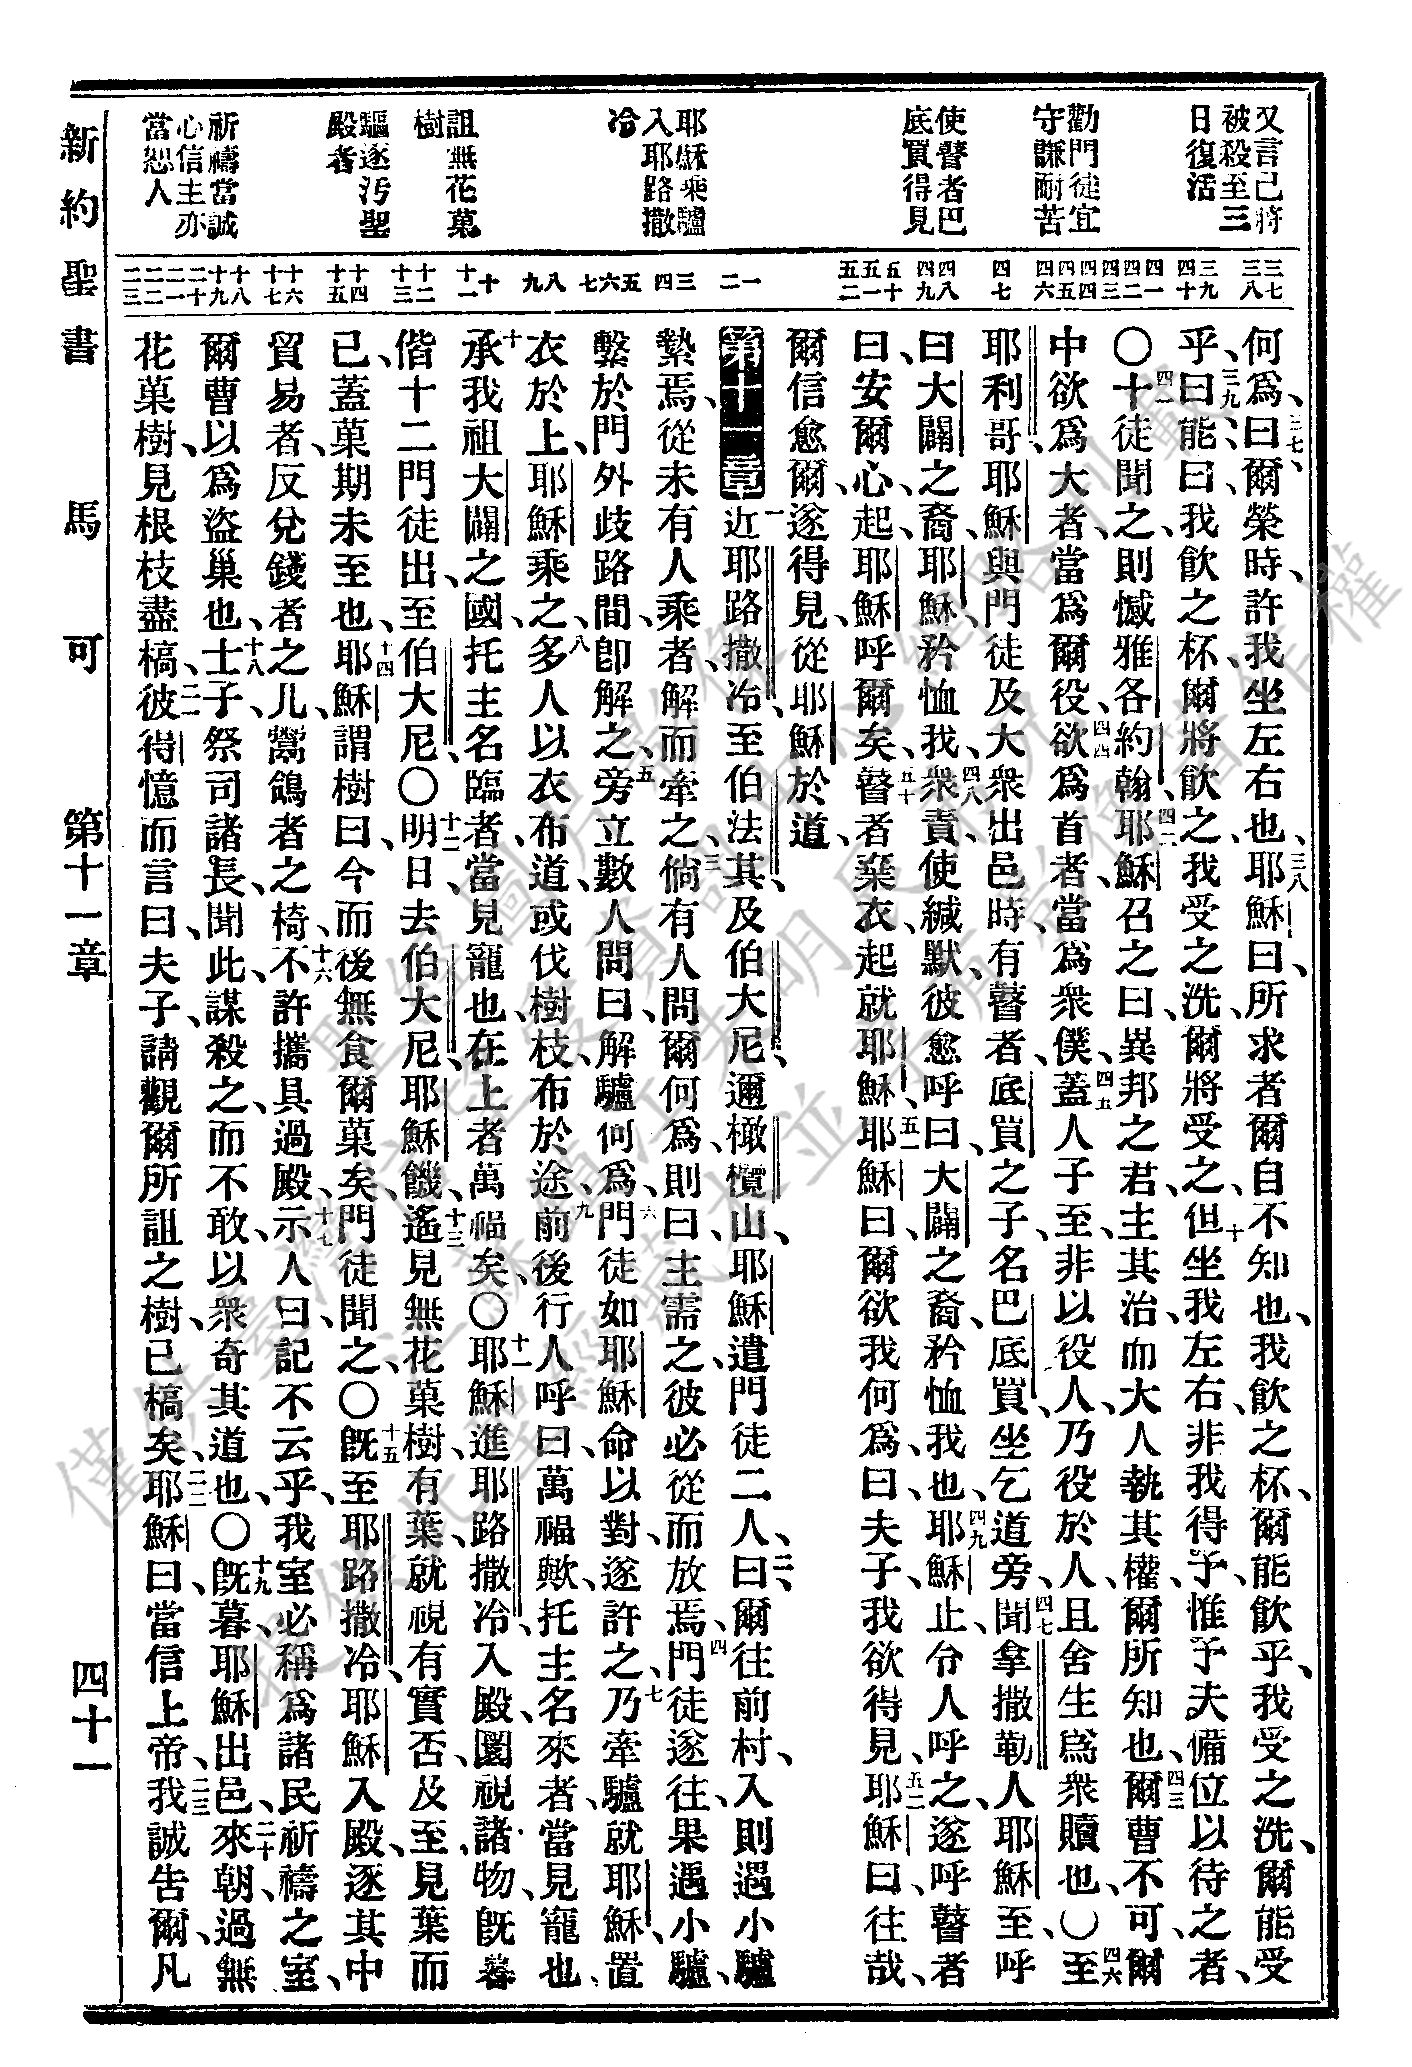 又言己將
被殺至三
日復活
勸門徒宜
守謙耐苦
使瞽者巴
底買得見
耶穌乘驢
入耶路撒
冷
詛無花菓
樹
驅逐汚聖
殿者
祈禱當誠
心信主亦
當恕人
三七
三八
三九
四十
四一
四二
四三
四四
四五
四六
四七
四八
四九
五十
五一
五二
一
二
三
四
五
六
七
八
九
十
十一
十二
十三
十四
十五
十六
十七
十八
十九
二十
二一
二二
二三
何爲、三七曰、爾榮時、許我坐左右也、三八耶穌曰、所求者爾自不知也、我飮之杯、爾能飮乎、我受之洗、爾能受
乎、三九曰、能、曰、我飮之杯、爾將飮之、我受之洗、爾將受之、四十但坐我左右、非我得予、惟予夫備位以待之者、
〇四一十徒聞之、則憾雅各約翰、四二耶穌召之曰、異邦之君、主其治、而大人執其權、爾所知也、四三爾曹不可、爾
中欲爲大者、當爲爾役、四四欲爲首者、當爲衆僕、四五蓋人子至、非以役人、乃役於人、且舍生爲衆贖也、〇四六至
耶利哥、耶穌與門徒及大衆出邑時、有瞽者、底買之子、名巴底買、坐乞道旁、四七聞拿撒勒人耶穌至、呼
曰、大闢之裔、耶穌、矜恤我、四八衆責使緘默、彼愈呼曰、大闢之裔、矜恤我也、四九耶穌止、令人呼之、遂呼瞽者
曰、安爾心、起、耶穌呼爾矣、五十瞽者棄衣、起就耶穌、五一耶穌曰、爾欲我何爲、曰、夫子、我欲得見、五二耶穌曰、往哉、
爾信愈爾、遂得見、從耶穌於道、
第十一章 一近耶路撒冷、至伯法其、及伯大尼、邇橄欖山、耶穌遣門徒二人、二曰、爾往前村、入則遇小驢
縶焉、從未有人乘者、解而牽之、三倘有人問爾何爲、則曰、主需之、彼必從而放焉、四門徒遂往、果遇小驢、
繫於門外歧路間、卽解之、五旁立數人問曰、解驢何爲、六門徒如耶穌命以對、遂許之、七乃牽驢就耶穌、置
衣於上、耶穌乘之、八多人以衣布道、或伐樹枝、布於途、九前後行人呼曰、萬福歟、托主名來者、當見寵也、
十承我祖大闢之國、托主名臨者、當見寵也、在上者萬福矣、〇十一耶穌進耶路撒冷、入殿、圜視諸物、旣暮、
偕十二門徒出、至伯大尼、〇十二明日、去伯大尼、耶穌饑、十三遙見無花菓樹、有葉、就視有實否、及至、見葉而
已、蓋菓期未至也、十四耶穌謂樹曰、今而後無食爾菓矣、門徒聞之、〇十五旣至耶路撒冷、耶穌入殿、逐其中
貿易者、反兌錢者之几、鬻鴿者之椅、十六不許攜具過殿、十七示人曰、記不云乎、我室必稱爲諸民祈禱之室、
爾曹以爲盜巢也、十八士子、祭司諸長、聞此、謀殺之、而不敢、以衆奇其道也、〇十九旣暮、耶穌出邑、二十來朝、過無
花菓樹、見根枝盡槁、二一彼得憶而言曰、夫子、請觀爾所詛之樹、已槁矣、二二耶穌曰、當信上帝、二三我誠吿爾、凡
新約聖書 馬可 第十一章 四十一